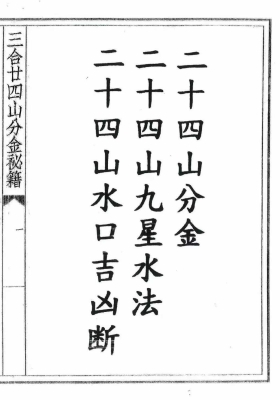 二十四山分金
二十四山九星水法
二十四山水口吉凶断
三合廿四山分金秘籍
一